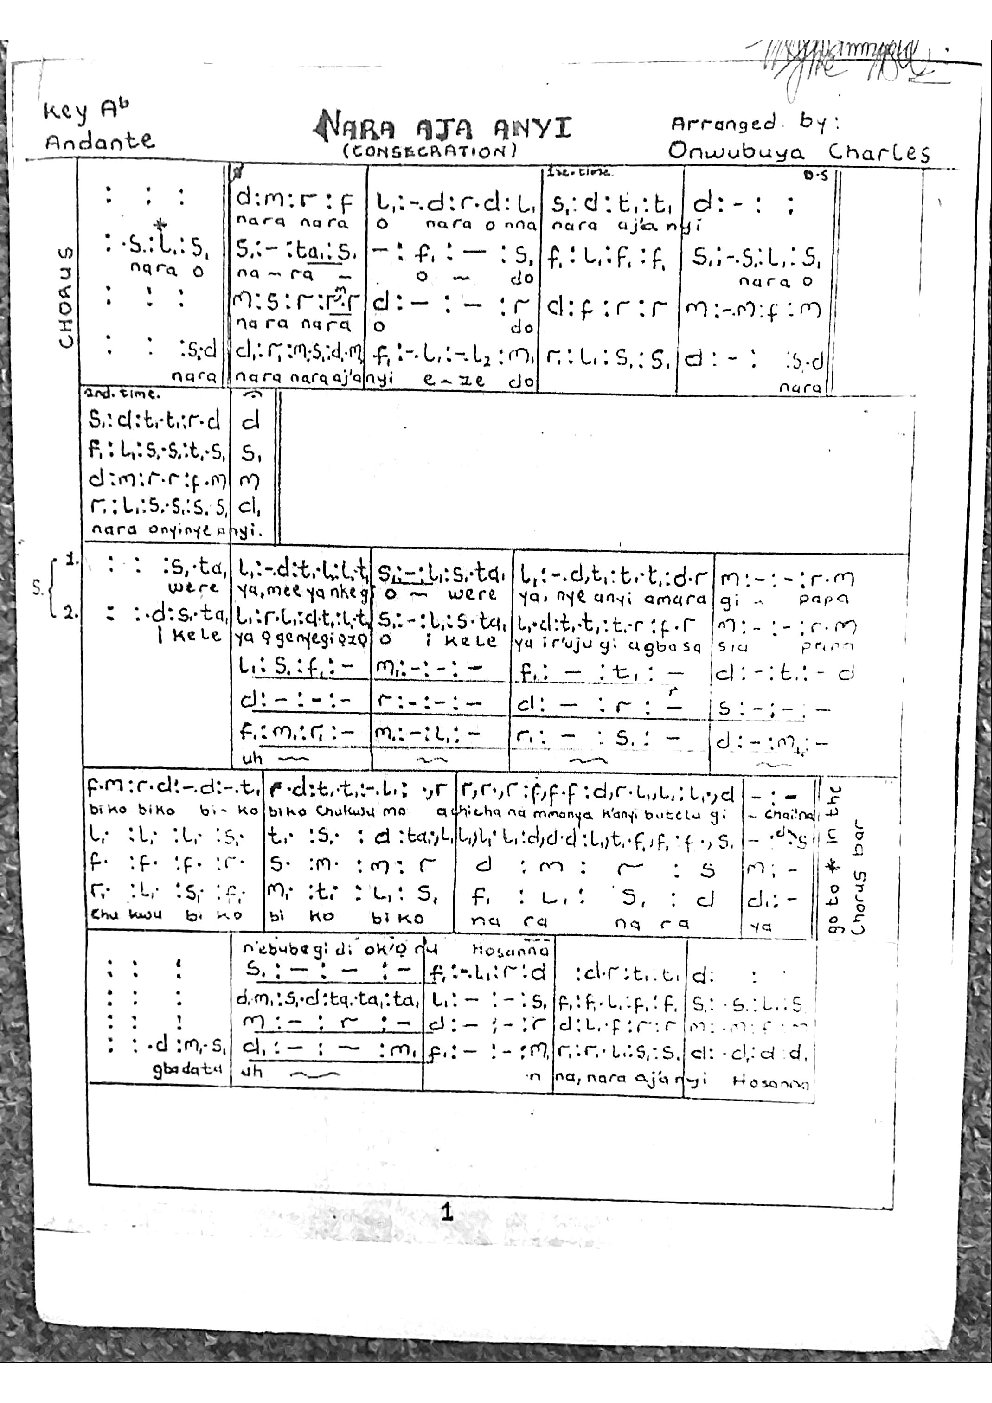 Key Ab
Andante
NARA AJA ANYI
(CONSECRATION)
Arranged by:
Onwubuya Charles
CHORUS
1st. time.
D.S
: : : d:m:r:f l,:-.d:r.d:l, s,:d:t,:t, d:-: :
nara nara o nara o nna nara aj'a nyi
*
:.s,:l,:s, s,:-:ta,:s, -:f,:-:s, f,:l,:f,:f, s,:-.s,:l,:s,
nara o na-ra - o - do nara o
: : : m:s:r:r.m.r d:-:-:r d:f:r:r m:-.m:f:m
nara nara o do
: : :s,.d d,:r,:m,.s,:d,.m, f,:-.l,:-.l2:m, r,:l,:s,:s, d:-: :s,.d
nara nara nara aj'a nyi e-ze do nara
2nd. time.
s,:d:t,.t,:r.d d
f,:l,:s,.s,:t,.s, s,
d:m:r.r:f.m m
r,:l,:s,.s,:s,.s, d,
nara onyinye anyi.
S.
1. : : :s,.ta, l,:-.d:t,.l,:l,.t, s,:-:l,:s,.ta, l,:-.d,t,:t,.t,:d.r m:-:-:r.m
were ya, mee ya nke gi o - were ya, nye anyi amara gi - papa
2. : :.d:s,.ta, l,:r.l,:d.t,:l,.t, s,:-:l,:s,.ta, l,.d:t,.t,:t,.r:f.r m:-:-:r.m
i kele ya o o i kele ya ir'uju gi agbasa sia
l,:s,:f,:- m,:-:-:- f,:-:t,:- d:-:t,:-d
d:-:-:- r:-:-:- d:-:r:- s:-:-:-
f,:m,:r,:- m,:-:l,:- r,:-:s,:- d:-:m,:-
uh
f.m:r.d:-.d:-.t, r.d:t,.t,:-.l,: .,r r,r.,r:f,f.f:d,r.l,,l,:l,.,d -:-
biko biko bi-ko biko Chukwu mo achicha na mmanya k'anyi butelu gi
l,:l,:l,:s, t,:s,:d:ta,.,l,
f.:f.:f.:r. s.:m.:m.:r d:m:r:s m:-
r,.:l,.:s,.:f,. m,.:t,.:l,.:s, f,:l,:s,:d d,:-
Chu kwu bi ko bi ko bi ko na ra na ra ya
go to * in the
Chorus bar
n'ebube gi di Hosanna
: : : s,:-:-:- f,:-.l,:r:d :d.r:t,.t, d: :
: : : d.m,:s,.d:ta,.ta,:ta, l,:-:-:s, f,:f,.l,:f,:f, s,:.s,:l,:s,
: : : m:-:r:- d:-:-:r d:l,.f:r:r m:.m:f:m
: :.d:m,.s, d,:-:-:m, f,:-:-:m, r,:r,.l,:s,:s, d:.d,:d,:d,
gbadatu uh na, nara aj'a nyi Hosanna
1